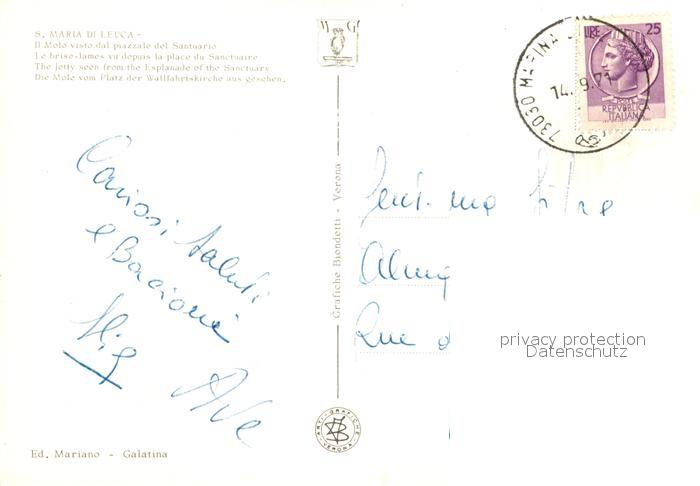 S. MARIA DI LEUCA -
Il Molo visto dal piazzale del Santuario
Le brise-lames vu depuis la place du Sanctuaire
The Jetty seen from the Esplanade of the Sanctuary
Die Mole vom Platz der Wallfahrtskirche aus gesehen.
M G
73030 MARINA
14. 9.71
LIRE 25
REPVBBLICA
ITALIANA
Carissi saluti
e Bacioni
Grafiche Biondetti - Verona
Gent. ma
privacy protection
Datenschutz
ARTI - GRAFICHE
VERONA
Ed. Mariano - Galatina